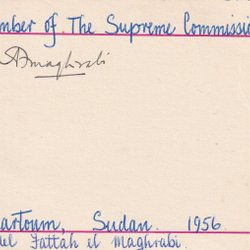 mber of The Supreme Commissio
Amaghrabi
artoum, Sudan. 1956.
del Fattah el Maghrabi.